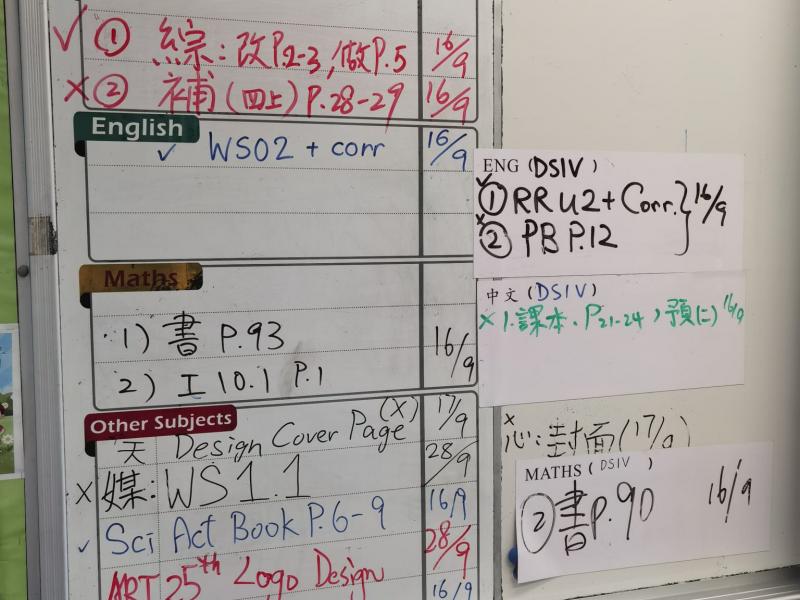 ✓ ① 綜:改P.2-3,做P.5 16/9
✗ ② 補(四上) P.28-29 16/9
English
✓ WS02 + corr 16/9
Maths
1) 書 P.93
2) 工 10.1 P.1 16/9
Other Subjects
天 Design Cover Page (X) 17/9
X 媒:WS1.1 28/9
✓ Sci Act Book P.6-9 16/9
ART 25th Logo Design 28/9
16/9
ENG (DSIV)
✓ ① RR U2 + Corr.
✗ ② PB P.12 } 16/9
中文 (DSIV)
✗ 1.課本、P21-24,預(二) 16/9
✗ 心:封面(17/9)
MATHS (DSIV)
② 書P.90 16/9